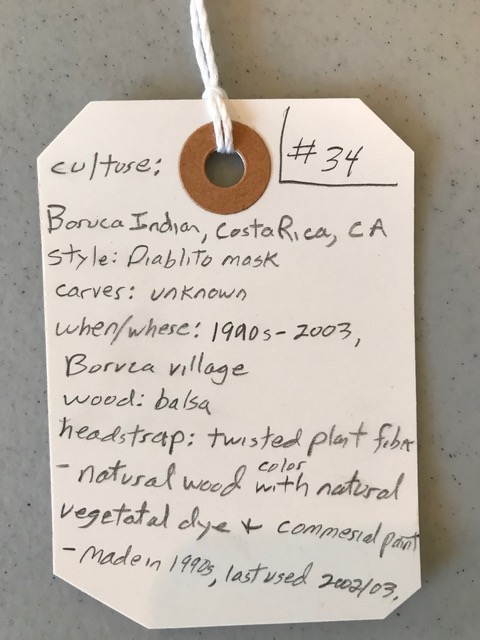 #34
culture:
Boruca Indian, Costa Rica, CA
style: Diablito mask
carver: unknown
when/where: 1990s-2003,
Boruca village
wood: balsa
headstrap: twisted plant fiber
- natural wood color with natural
vegetatal dye + commerial paint
- made in 1990s, last used 2002/03.